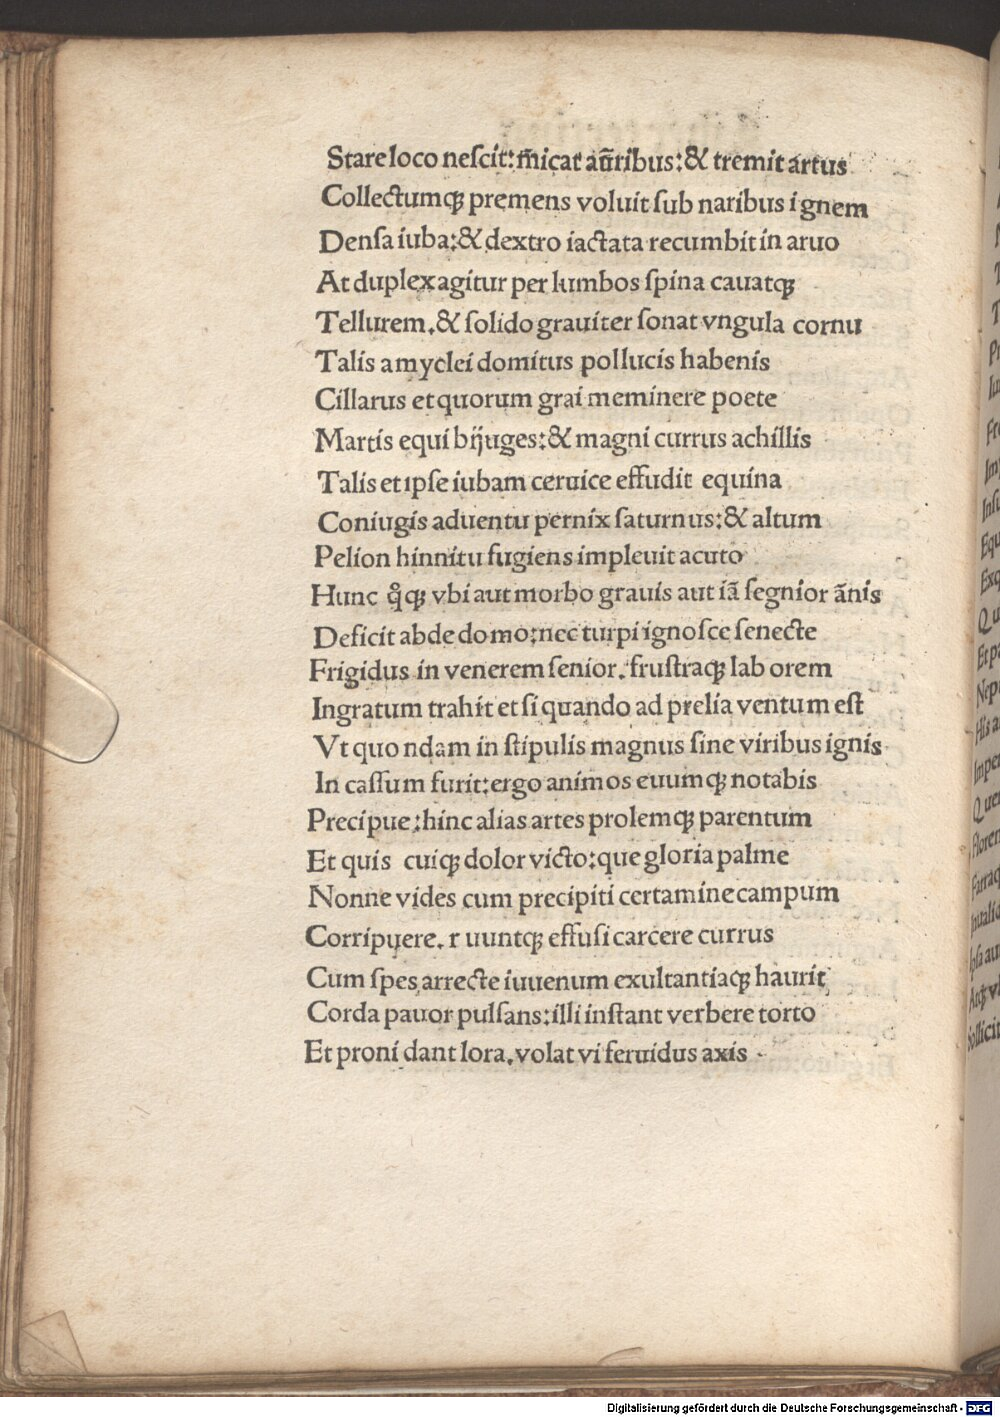 Stare loco neſcit: m̄icat aūribus: & tremit artus
Collectumqꝫ premens voluit ſub naribus ignem
Denſa iuba: & dextro iactata recumbit in aruo
At duplex agitur per lumbos ſpina cauatqꝫ
Tellurem. & ſolido grauiter ſonat vngula cornu
Talis amyclei domitus pollucis habenis
Cillarus et quorum grai meminere poete
Martis equi biȷuges: & magni currus achillis
Talis et ipſe iubam ceruice effudit equina
Coniugis aduentu pernix ſaturnus: & altum
Pelion hinnitu fugiens impleuit acuto
Hunc qͦqꝫ vbi aut morbo grauis aut iā ſegnior ānis
Deficit abde domo: nec turpi ignoſce ſenecte
Frigidus in venerem ſenior. fruſtraqꝫ lab orem
Ingratum trahit et ſi quando ad prelia ventum eſt
Vt quondam in ſtipulis magnus ſine viribus ignis
In caſſum furit: ergo animos euumqꝫ notabis
Precipue: hinc alias artes prolemqꝫ parentum
Et quis cuiqꝫ dolor victo: que gloria palme
Nonne vides cum precipiti certamine campum
Corripuere. r uuntqꝫ effuſi carcere currus
Cum ſpes arrecte iuuenum exultantiaqꝫ haurit
Corda pauor pulſans: illi inſtant verbere torto
Et proni dant lora. volat vi feruidus axis
Digitalisierung gefördert durch die Deutsche Forschungsgemeinschaft - DFG